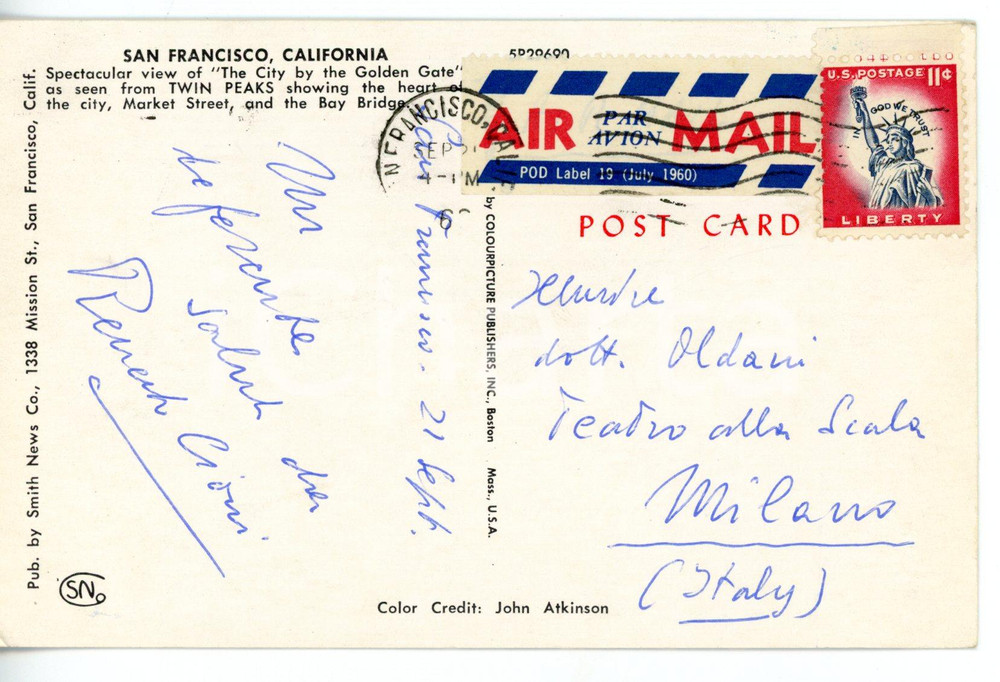 SAN FRANCISCO, CALIFORNIA
Spectacular view of "The City by the Golden Gate"
as seen from TWIN PEAKS showing the heart of
the city, Market Street, and the Bay Bridge.
5P29690
Pub. by Smith News Co., 1338 Mission St., San Francisco, Calif.
SN
San Francisco. 21 Sept.
Un
deferente
saluto dal
Renato Cioni
by COLOURPICTURE PUBLISHERS, INC., Boston Mass., U.S.A.
N FRANCISCO, CALIF
SEP 21
4-PM
AIR PAR AVION MAIL
POD Label 19 (July 1960)
U.S. POSTAGE 11¢
IN GOD WE TRUST
LIBERTY
POST CARD
dott. Oldani
Teatro alla Scala
Milano
(Italy)
Color Credit: John Atkinson